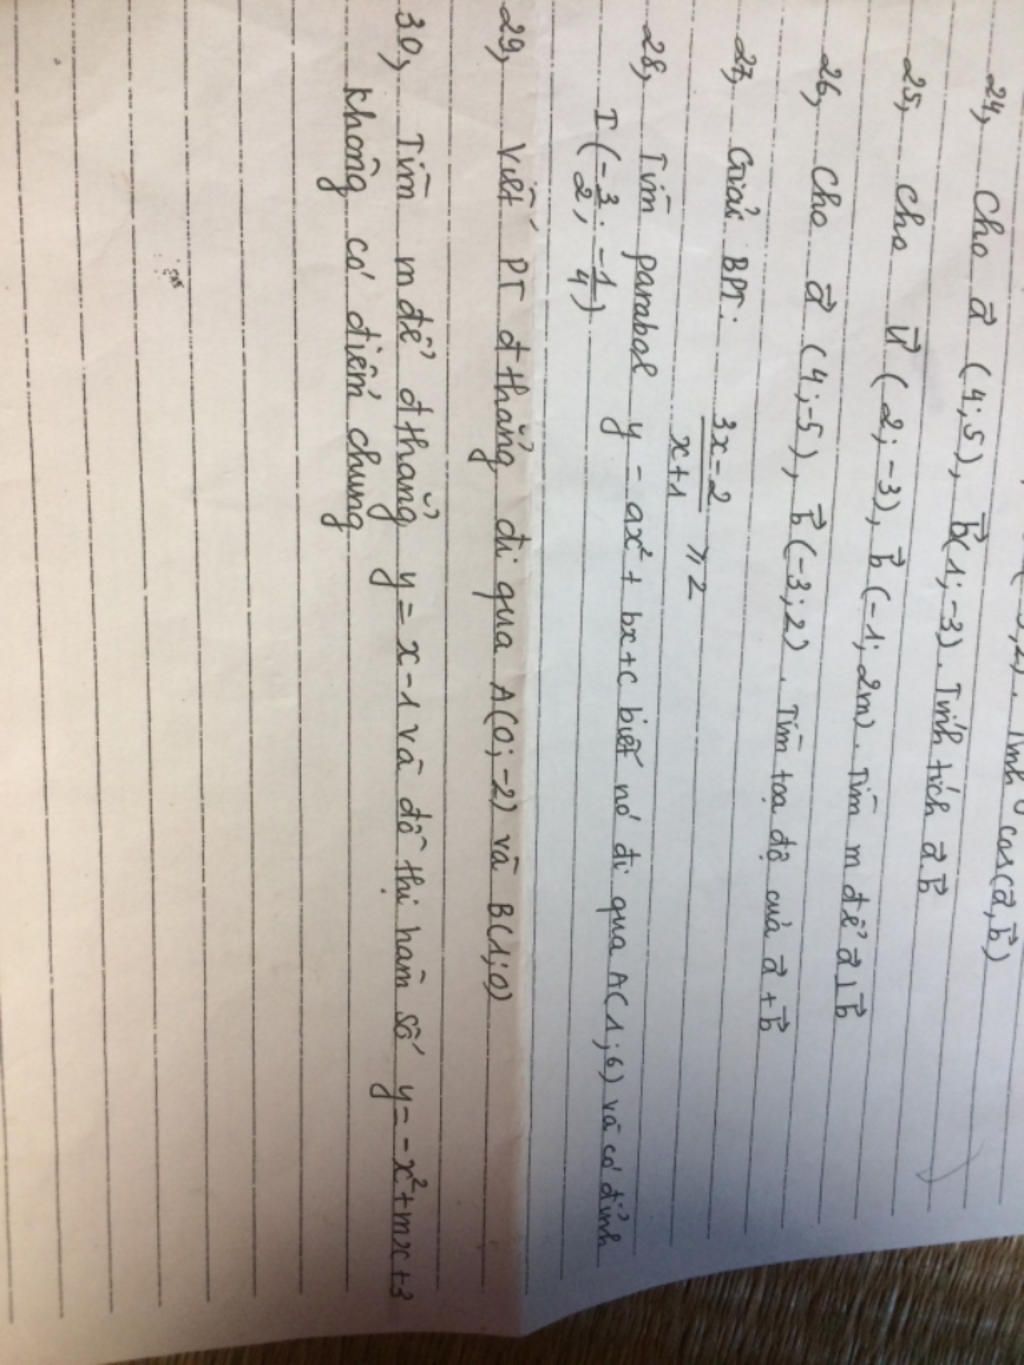 Tính cos(a⃗, b⃗)
24, Cho a⃗ (4; 5), b⃗(1; -3). Tính tích a⃗.b⃗
25, Cho u⃗ (2; -3), b⃗ (-1; 2m). Tìm m để a⃗ ⊥ b⃗
26, Cho a⃗ (4; -5), b⃗ (-3; 2). Tìm toạ độ của a⃗ + b⃗
27, Giải BPT: (3x - 2)/(x + 1) ⩾ 2
28, Tìm parabol y = ax² + bx + c biết nó đi qua A(1; 6) và có đỉnh
I (-3/2; -1/4)
29, Viết PT đthẳng đi qua A(0; -2) và B(1; 0)
30, Tìm m để đthẳng y = x - 1 và đồ thị hàm số y = -x² + mx + 3
không có điểm chung